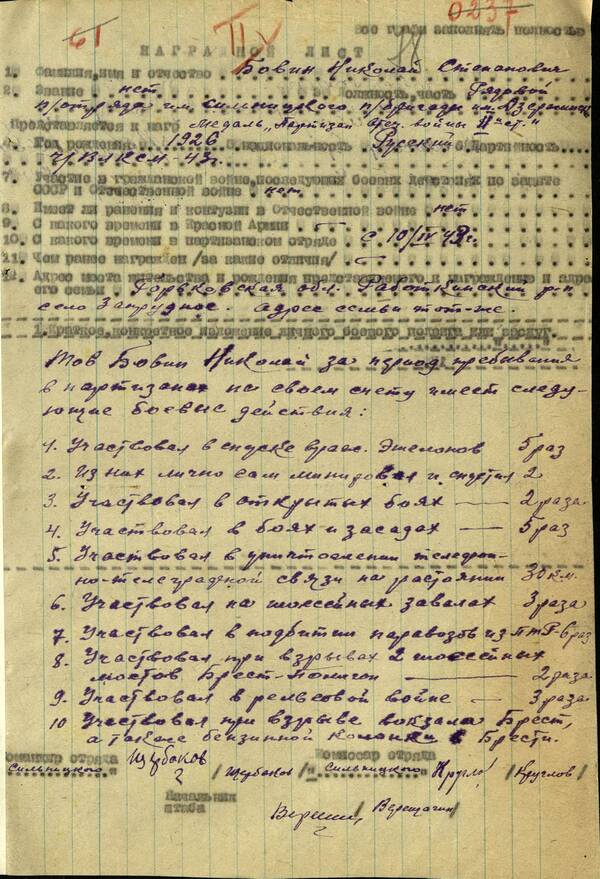 61
II
0237
Все графы заполнять полностью
НАГРАДНОЙ ЛИСТ
1. Фамилия, имя и отчество Бовин Николай Степанович
2. Звание нет Должность, часть Рядовой
п/отряда им. Сильницкого п/бригады им. Дзержинск
Представляется к наго Медаль „Партизан отеч. войны II ст."
Год рождения 1926 национальность Русский 6. Партийность
чл. ВЛКСМ - 43 г.
7. Участие в гражданской войне, последующих боевых действиях по защите
СССР и Отечественной войне нет
8. Имеет ли ранения и контузии в Отечественной войне нет
9. С какого времени в Красной Армии —
10. С какого времени в партизанском отряде с 10/IV 43 г.
11. Чем ранее награжден /за какие отличия/ —
12. Адрес места жительства и рождения представляемого к награждению и адрес
его семьи Горьковская обл. Работкинский р-н
село Запрудное. Адрес семьи тот-же.
1. Краткое, конкретное изложение личного боевого подвига или заслуг.
Тов Бовин Николай за период пребывания
в партизанах на своем счету имеет следу-
ющие боевые действия:
1. Участвовал в спуске враж. эшелонов 5 раз
2. Из них лично сам минировал и спустил 2
3. Участвовал в открытых боях — 2 раза
4. Участвовал в боях и засадах — 5 раз
5. Участвовал в уничтожении телефон-
но-телеграфной связи на растоянии 30 км.
6. Участвовал на шоссейных завалах 3 раза
7. Участвовал в подбитии паравозов из ПТР - 6 раз
8. Участвовал при взрывах 2 шоссейных
мостов Брест-Полигон — 2 раза
9. Участвовал в рельсовой войне — 3 раза
10 Участвовал при взрыве вокзала Брест,
а также бензинной колонки в Брести.
Командир отряда Щербаков Комиссар отряда
Сильницкого" /Щербаков/ „Сильницкого" Кругло /Круглов/
Начальник
штаба
Верещ, /Верещагин/